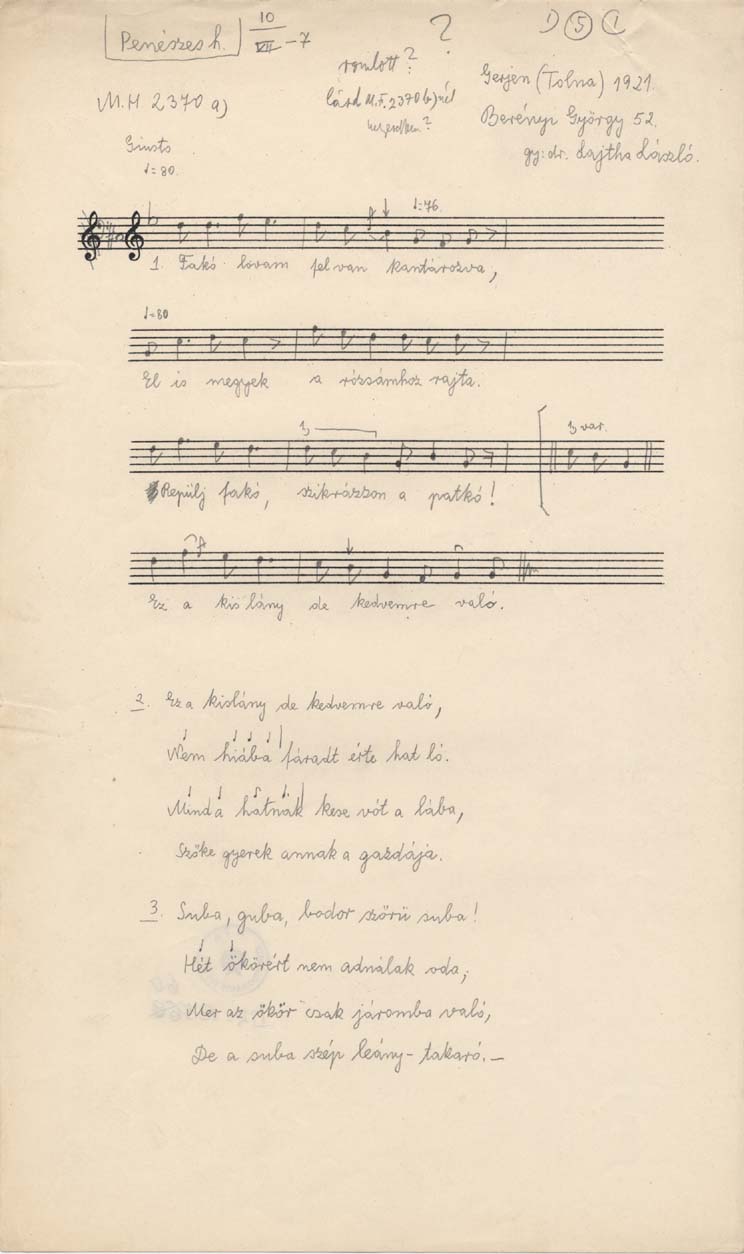 Penészes h. 10/VII - 7
?
D 5 1
romlott?
lásd M.F. 2370 b)nél
Gerjen (Tolna) 1921.
M.H. 2370 a)
Berényi György 52.
gy: dr. Lajtha László.
Giusto
♩=80.
♩=76.
1. Fakó lovam fel van kantározva,
♩=80
El is megyek a rózsámhoz rajta.
var.
Repülj fakó, szikrázzon a patkó!
Ez a kis lány de kedvemre való.
2. Ez a kislány de kedvemre való,
Nem hiába fáradt érte hat ló.
Mind a hatnak kese vót a lába,
Szőke gyerek annak a gazdája.
3. Suba, guba, bodor szőrü suba!
Hét ökörért nem adnálak oda,
Mer az ökör csak járomba való,
De a suba szép leány-takaró.—